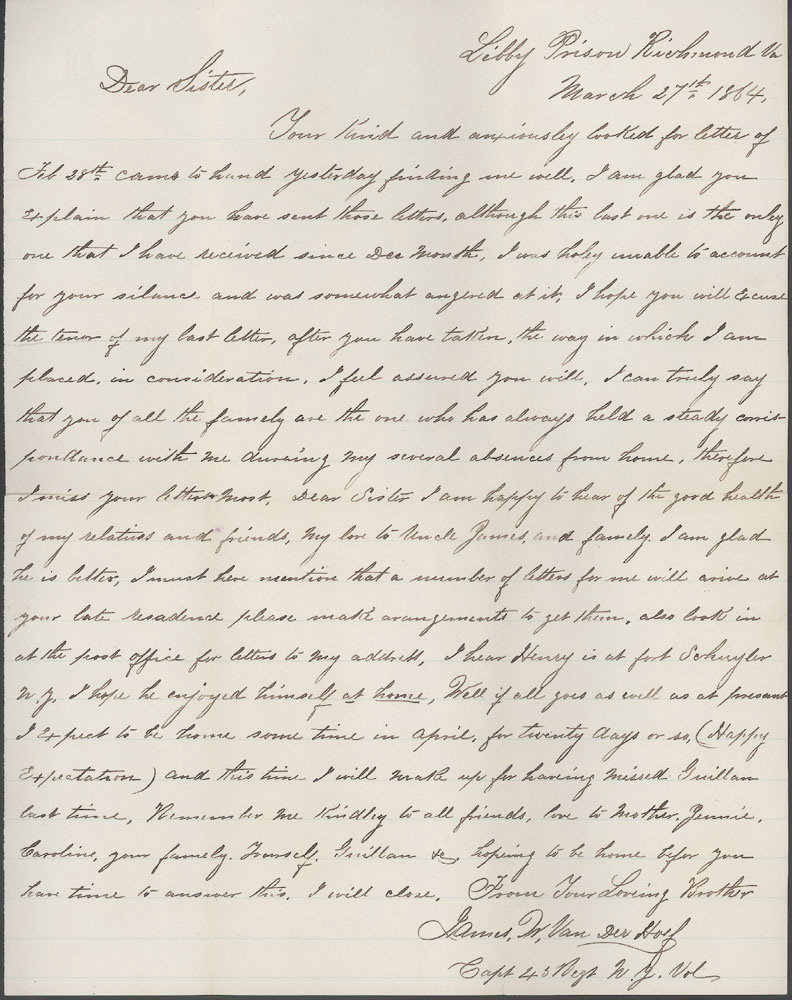 Libby Prison Richmond Va
March 27th 1864.
Dear Sister,
Your Kind and anxiousley looked for letter of
Feb 28th came to hand yesterday finding me well. I am glad you
Explain that you have sent those letters, although this last one is the only
one that I have received since Dec Month. I was holey unable to account
for your silance and was somewhat angered at it, I hope you will Excuse
the tenor of my last letter, after you have taken, the way in which I am
placed, in consideration. I feel assured you will. I can truly say
that you of all the famely are the one who has always held a steady corris-
pondance with me dureing my several absences from home, therefore
I miss your letters most. Dear Sister I am happy to hear of the good health
of my relatives and friends, My love to Uncle James, and famely. I am glad
he is better, I must here mention that a number of letters for me will arive at
your late resadence please make arangements to get them, also look in
at the post office for letters to my address, I hear Henry is at fort Schuyler
N.Y. I hope he enjoyed himself at home, Well if all goes as well as at presant
I Expect to be home some time in April, for twenty days or so, (Happy
Expectation) and this time I will make up for having missed Guillan
last time, Remember me Kindley to all friends, love to Mother, Jennie,
Caroline, your famely. Yourself, Guillan &c, hopeing to be home befor you
have time to answer this. I will close. From Your Loveing Brother
James, W, Van Der Hoef
Capt 43 Regt N.Y. Vol